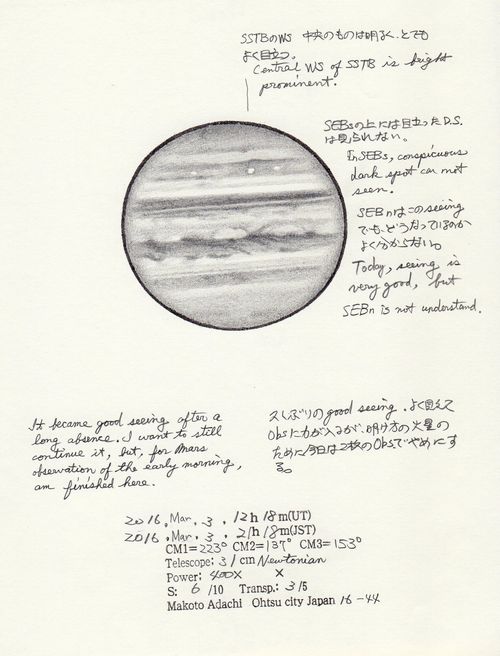 SSTBのWS 中央のものは明るく、とても
よく目立つ。
Central WS of SSTB is bright
prominent.
SEBsの上には目立ったD.S.
は見られない。
En SEBs, conspicuous
dark spot can not
seen.
SEBnはこのseeing
でも、どうなっているのか
よく分からない。
Today, seeing is
very good, but
SEBn is not understand.
It became good seeing after a
long absence. I want to still
continue it, but, for Mars
observation of the early morning,
am finished here.
久しぶりのgood seeing. よく見えて
Obsに力が入るが、明け方の火星の
ために今日は2枚のObsでやめにす
る。
2016. Mar. 3. 12h 18m(UT)
2016. Mar. 3. 21h 18m(JST)
CM1=223° CM2=137° CM3=153°
Telescope: 31cm Newtonian
Power: 400X X
S: 6 /10 Transp.: 3/5
Makoto Adachi Ohtsu city Japan 16-44